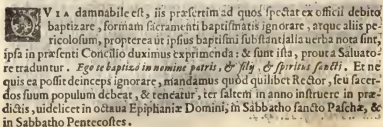 QVIA damnabile est, iis præsertim ad quos spectat ex officij debito
baptizare, formam sacramenti baptismatis ignorare, atque aliis pe
ricolosum, propterea ut ipsius baptismi substantialia uerba nota sint,
ipsa in præsenti Concilio duximus exprimenda: & sunt ista, prout a Saluato-
re traduntur. Ego te baptizo in nomine patris, & filij, & spiritus sancti. Et ne
quis ea possit deinceps ignorare, mandamus quod quilibet Rector, seu sacer-
dos suum populum debeat, & teneatur, ter saltem in anno instruere in præ-
dictis, uidelicet in octaua Epiphaniæ Domini, in Sabbatho sancto Paschæ, &
in Sabbatho Pentecostes.